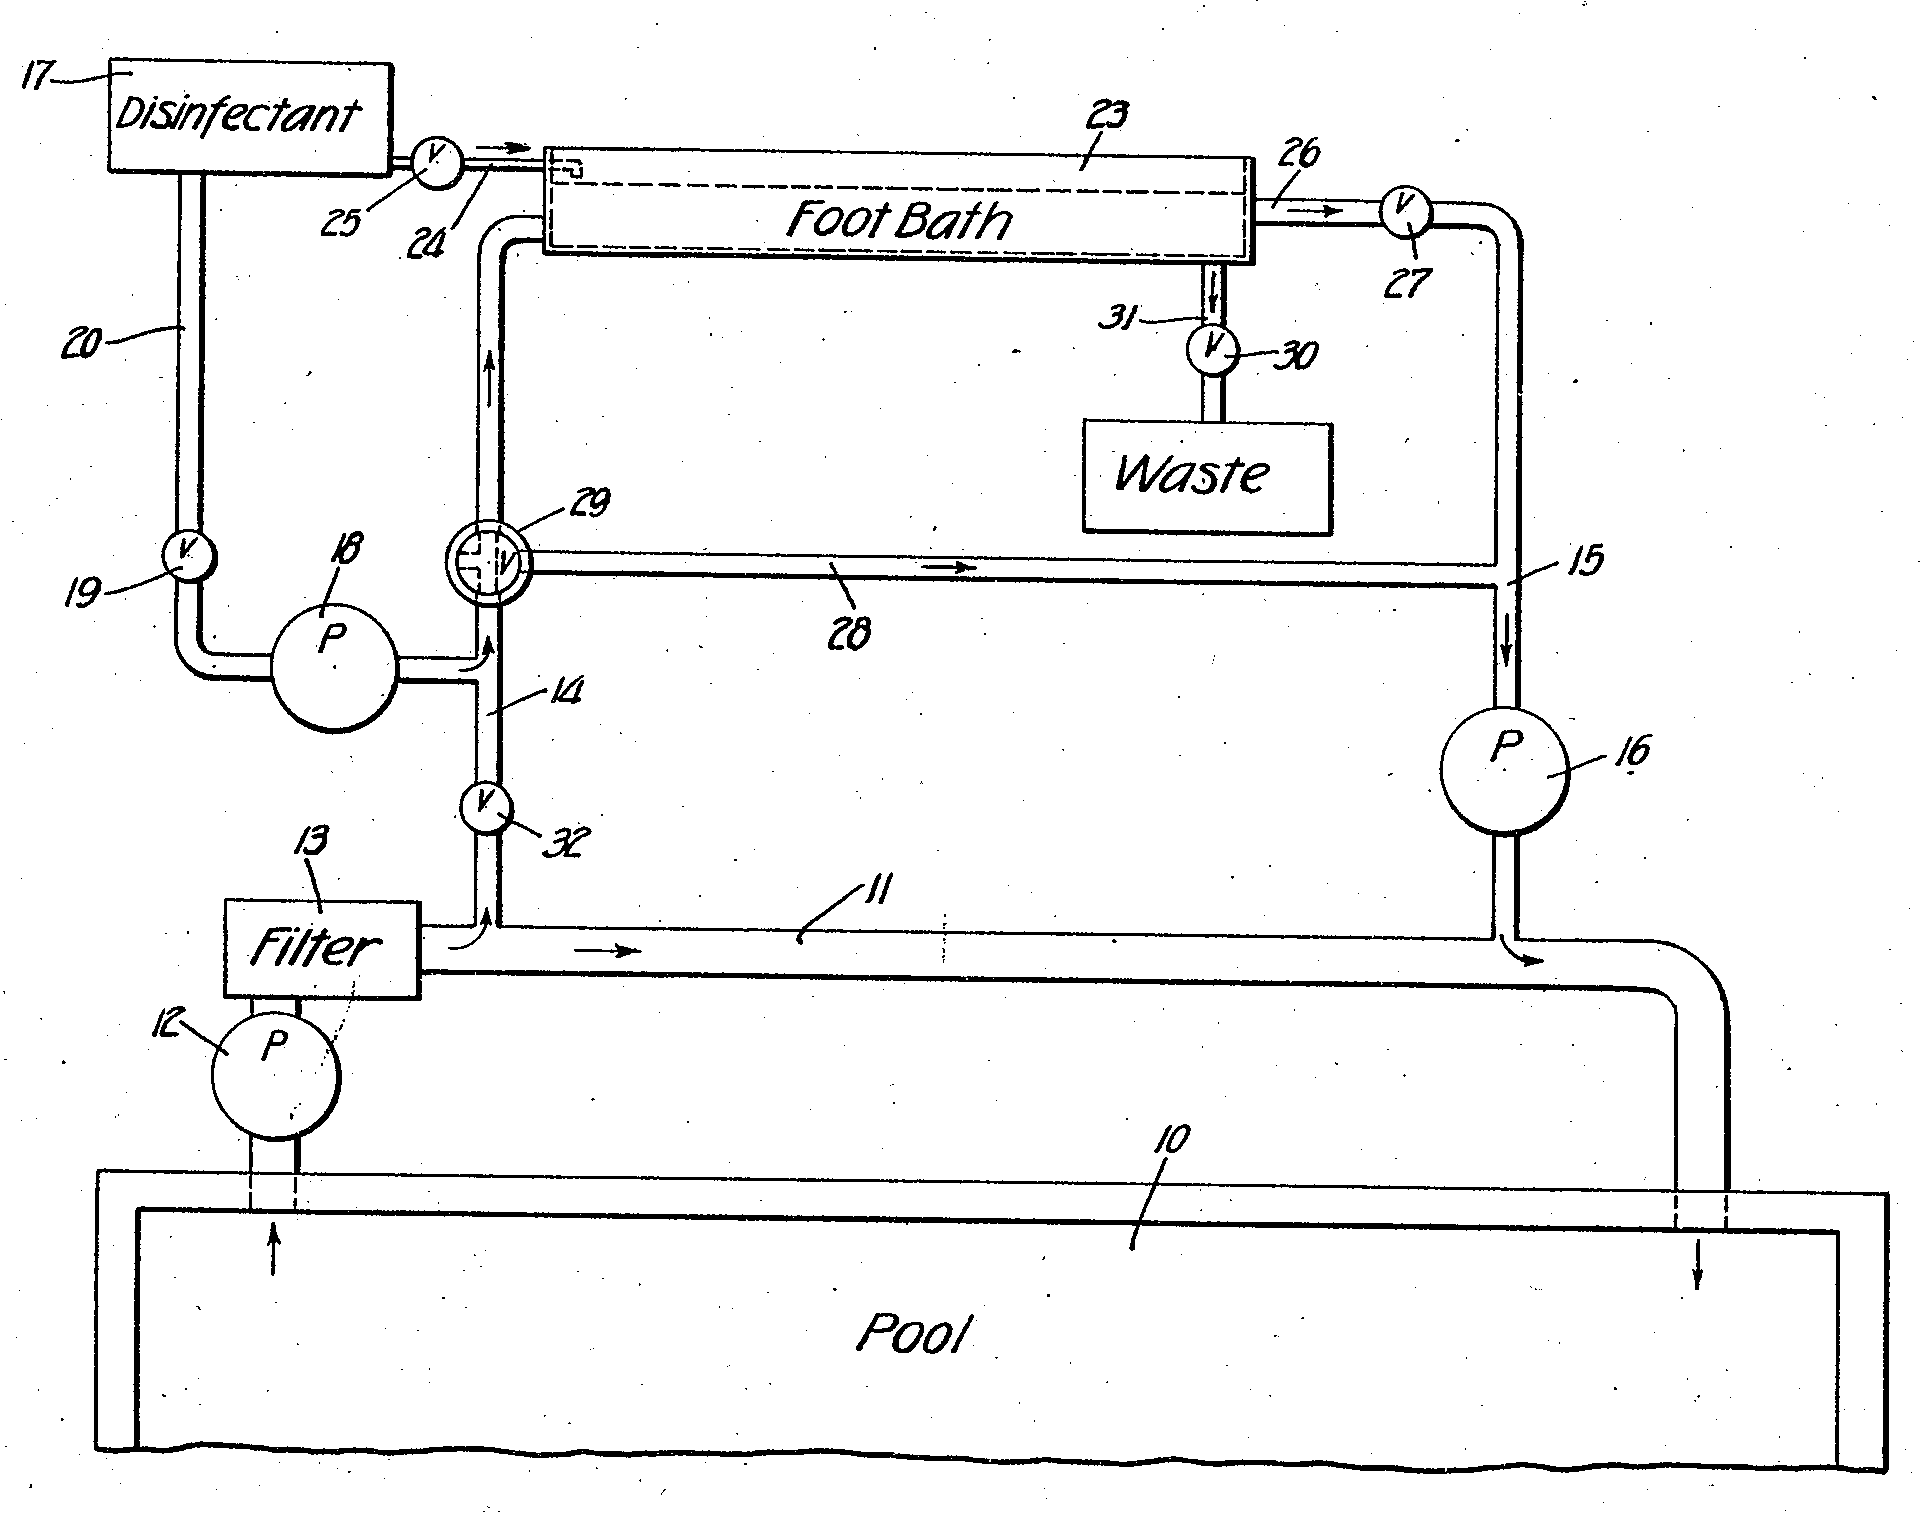 17
Disinfectant
V
25
24
23
Foot Bath
26
V
27
31
V
30
Waste
20
V
19
18
P
29
V
28
15
14
P
16
V
32
13
Filter
11
12
P
10
Pool